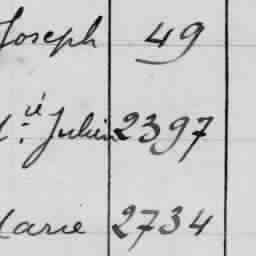 Joseph 49
Julien 2397
Marie 2734